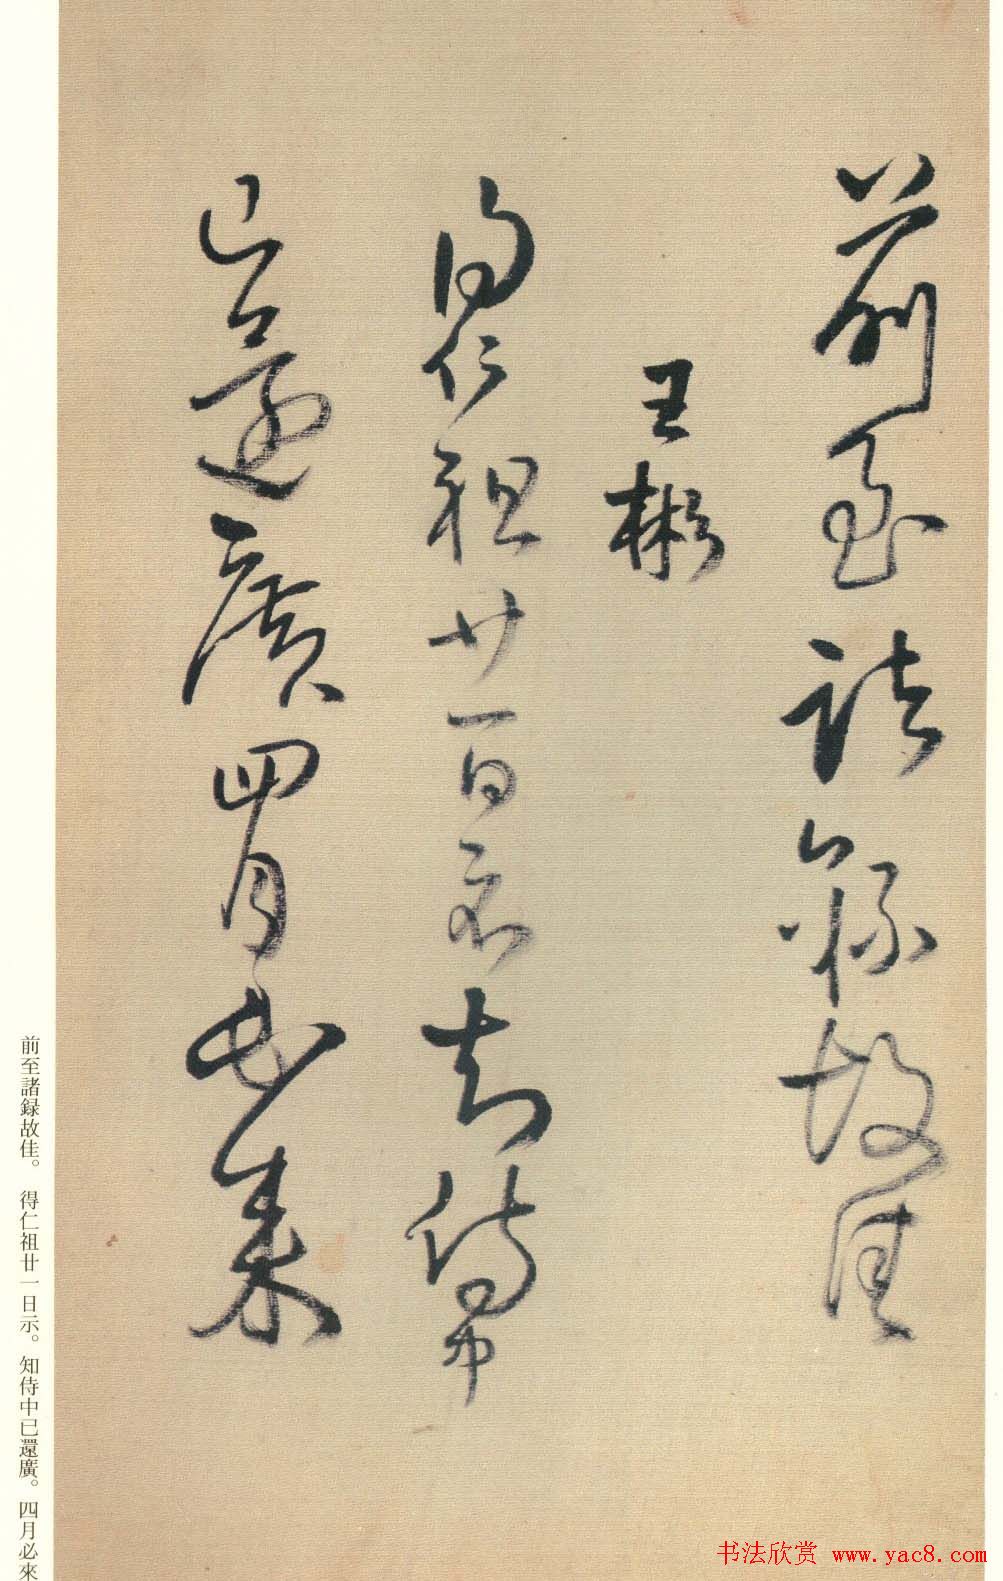 前至諸録故佳
王彬
得仁祖廿一日示知侍中
已還廣四月必來
前至諸録故佳。得仁祖廿一日示。知侍中已還廣。四月必來
书法欣赏 www.yac8.com